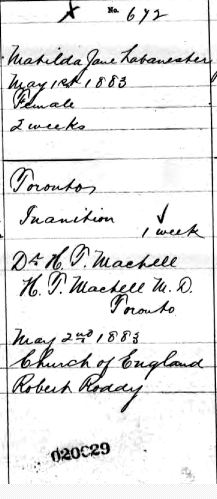 No. 672
Matilda Jane Labanester
May 1st 1883
Female
2 weeks
Toronto
Inanition
1 week
Dr H. T. Machell
H. T. Machell M. D.
Toronto
May 2nd 1883
Church of England
Robert Roddy
020029